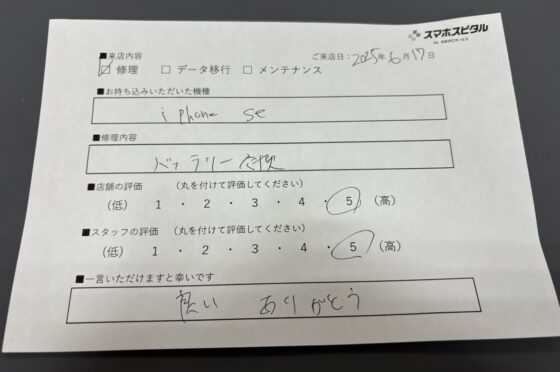 スマホスピタル
by 日本PCサービス
■来店内容 ご来店日：2025年6月17日
☑ 修理 □ データ移行 □ メンテナンス
■お持ち込みいただいた機種
iphone se
■修理内容
バッテリー交換
■店舗の評価 （丸を付けて評価してください）
（低） 1 ・ 2 ・ 3 ・ 4 ・ 5 （高）
■スタッフの評価 （丸を付けて評価してください）
（低） 1 ・ 2 ・ 3 ・ 4 ・ 5 （高）
■一言いただけますと幸いです
良い ありがとう